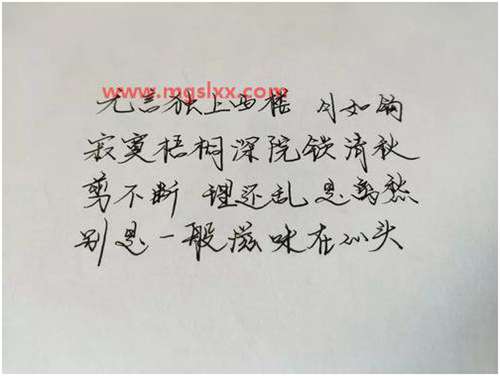 www.mgslxx.com
无言独上西楼 月如钩
寂寞梧桐深院锁清秋
剪不断 理还乱 是离愁
别是一般滋味在心头